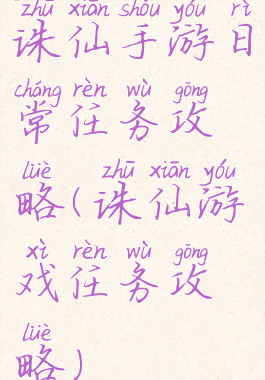 zhū xiān shǒu yóu rì
诛仙手游日
cháng rèn wù gōng
常任务攻
lüè zhū xiān yóu
略(诛仙游
xì rèn wù gōng
戏任务攻
lüè
略)